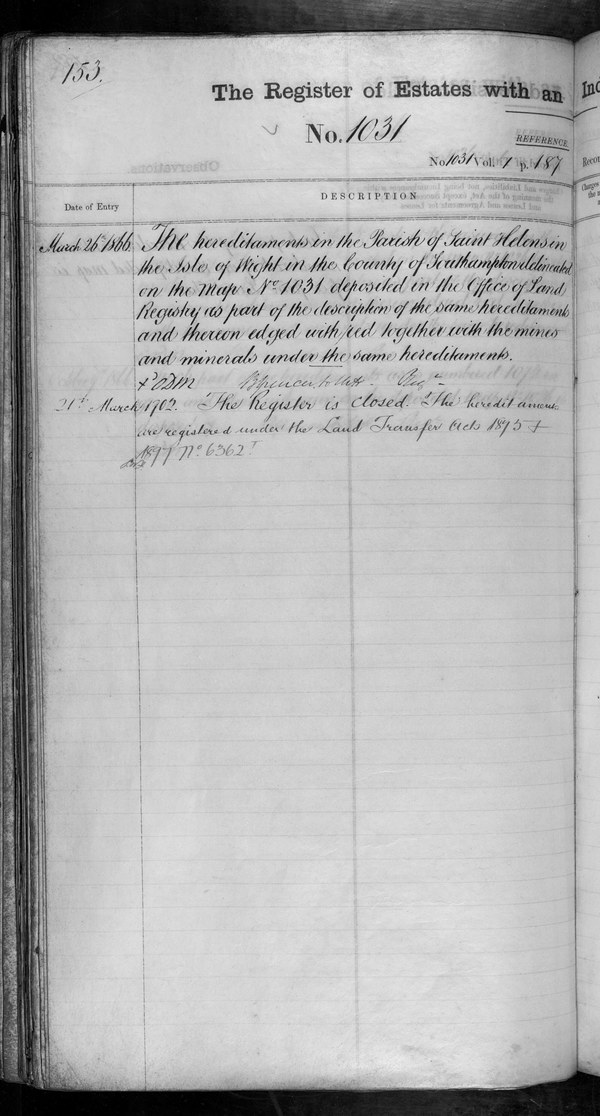 153.
The Register of Estates with an
Ind
No. 1031
REFERENCE.
No 1031 Vol. 7 p. 187
Observations.
Date of Entry
DESCRIPTION
March 26th 1866
The hereditaments in the Parish of Saint Helens in
the Isle of Wight in the County of Southampton delineated
on the Map No. 1031 deposited in the Office of Land
Registry as part of the description of the same hereditaments
and thereon edged with red together with the mines
and minerals under the same hereditaments.
21st March 1902. The Register is closed. The hereditaments
are registered under the Land Transfer Acts 1875 +
1897 No. 6362